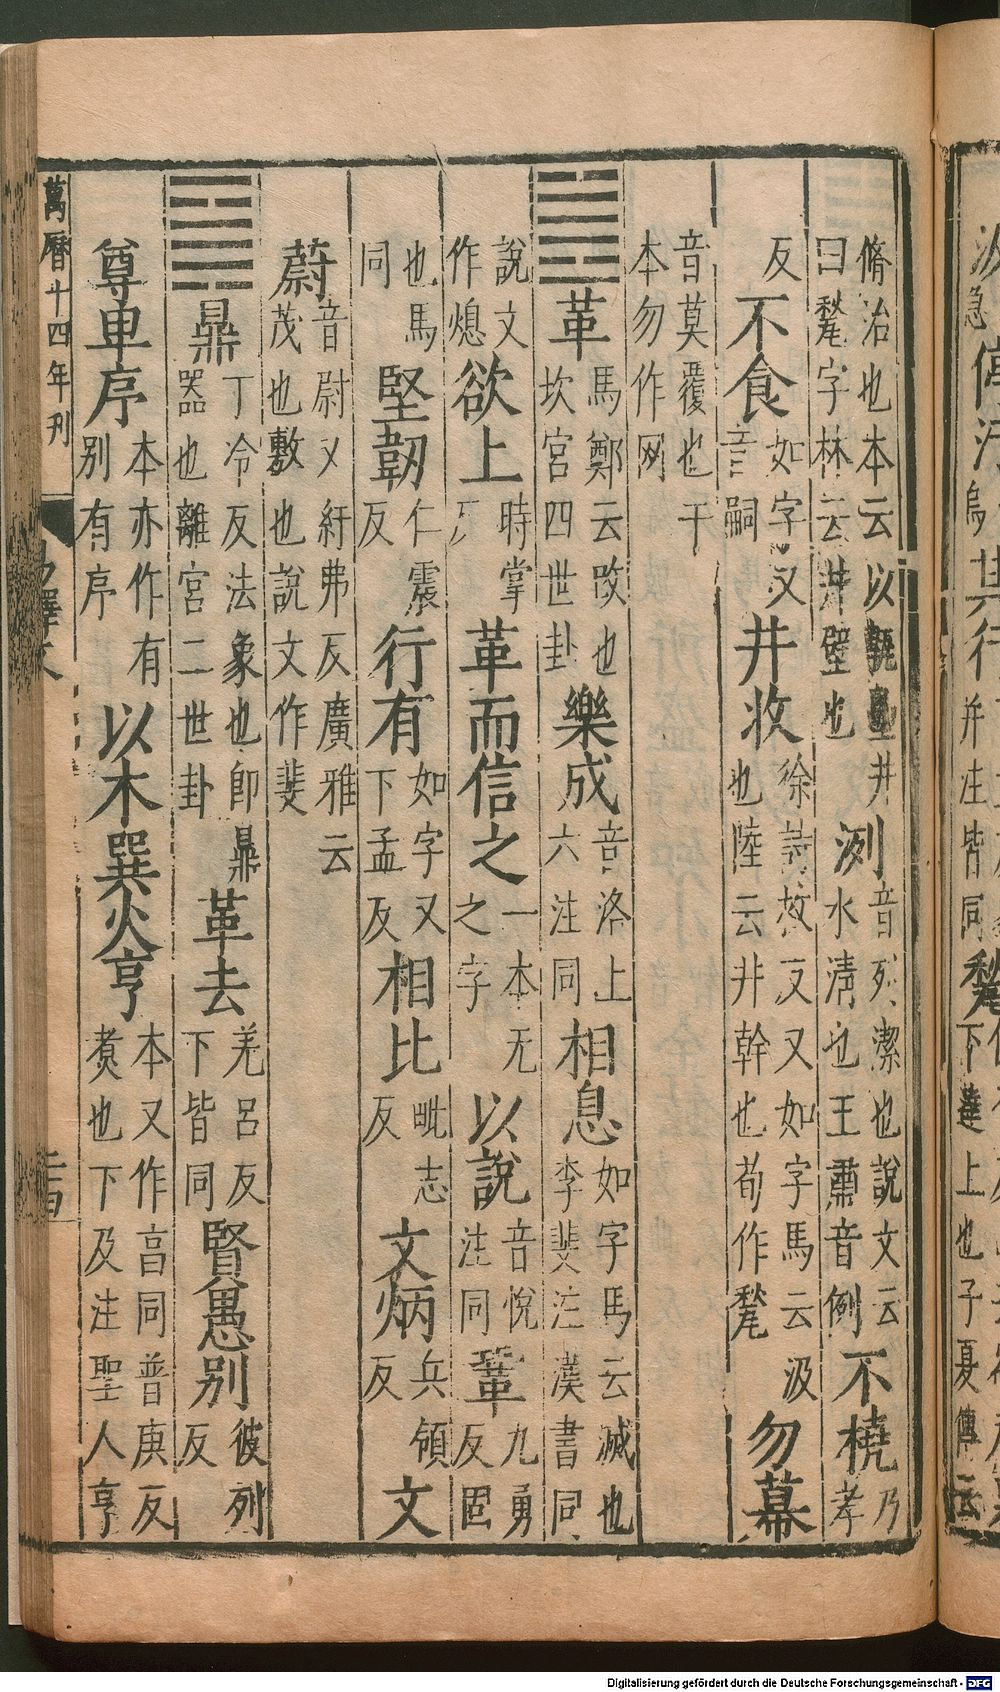 脩治也本云以甎壘井曰甃字林云井壁也洌音列潔也說文云水清也王肅音例不橈乃孝
反不食如字又音嗣井收徐詩救反又如字馬云汲也陸云井幹也荀作甃勿幕
音莫覆也干本勿作网
䷰革馬鄭云改也坎宮四世卦樂成音洛上六注同相息如字馬云滅也李斐注漢書同
說文作熄欲上時掌反革而信之一本无之字以說音悅注同鞏九勇反固
也馬同堅韌仁震反行有如字又下孟反相比毗志反文炳兵領反文
蔚音尉又紆弗反廣雅云茂也敷也說文作斐
䷱鼎丁冷反法象也即鼎器也離宮二世卦革去羌呂反下皆同賢愚别彼列反
尊卑序本亦作有别有序以木巽火亨本又作亯同普庚反煑也下及注聖人亨
萬曆十四年刊
易釋文
汲急停污烏其行并注皆同甃
下達上也子夏傳云
Digitalisierung gefördert durch die Deutsche Forschungsgemeinschaft - DFG